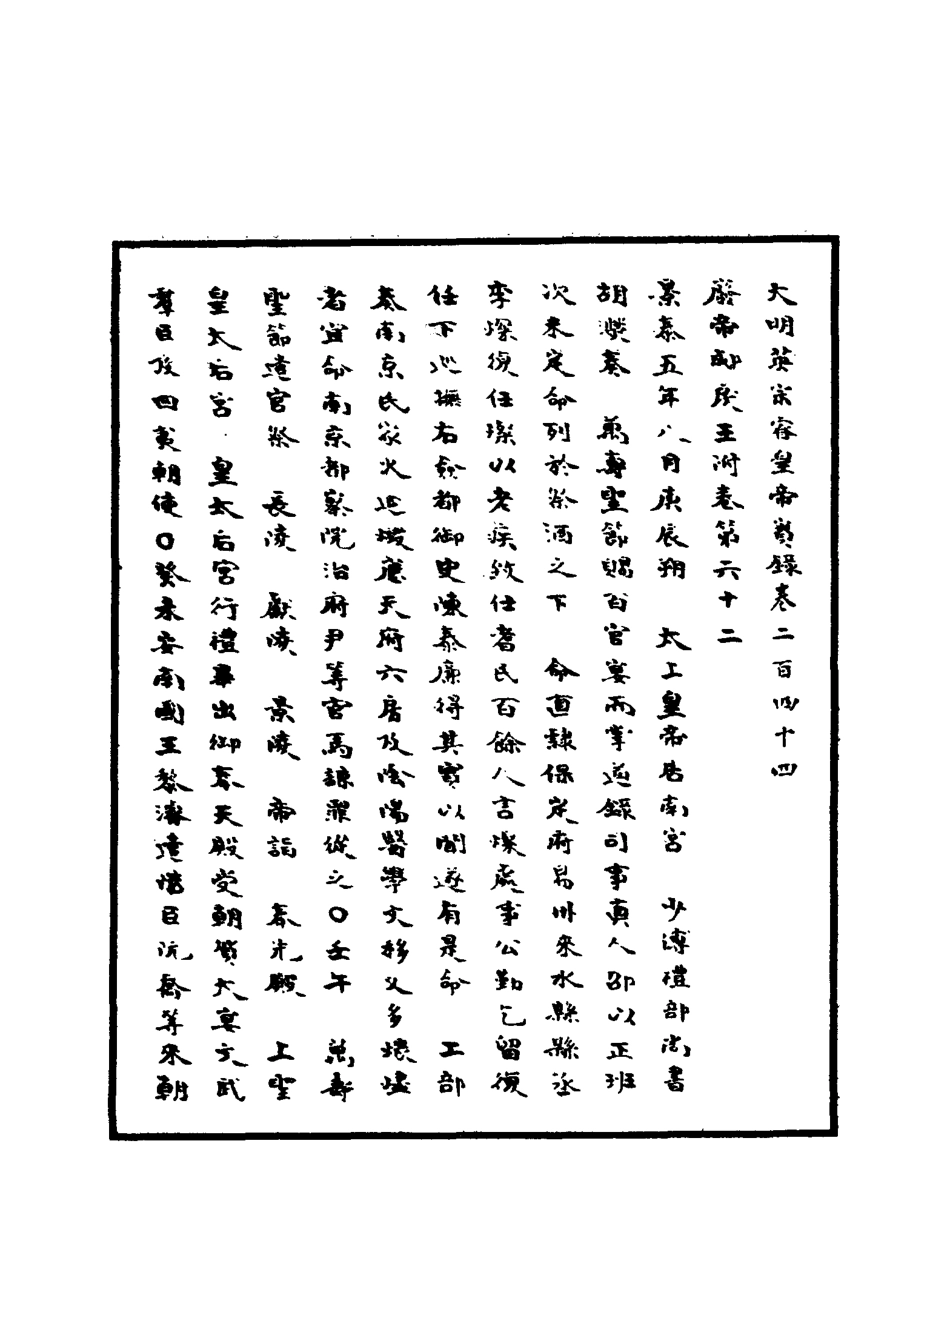 大明英宗睿皇帝實錄卷二百四十四
廢帝郕戾王附卷第六十二
景泰五年八月庚辰朔　太上皇帝居南宮　少傅禮部尚書
胡濙奏　萬壽聖節賜百官宴而掌道錄司事真人邵以正班
次未定命列於祭酒之下　命直隸保定府易州淶水縣縣丞
李燦復任燦以老疾致仕耆民百餘人言燦處事公勤乞留復
任下巡撫右僉都御史陳泰廉得其實以聞遂有是命　工部
奏南京民家火延燬應天府六房及陰陽醫學文移父多壞墟
者宜命南京都察院治府尹等官馬諒罪從之○壬午　萬壽
聖節遣官祭　長陵　獻陵　景陵　帝詣　奉先殿　上聖
皇太后宮　皇太后宮行禮畢出御奉天殿受朝賀大宴文武
羣臣及四夷朝使○癸未安南國王黎濬遣陪臣阮喬等來朝